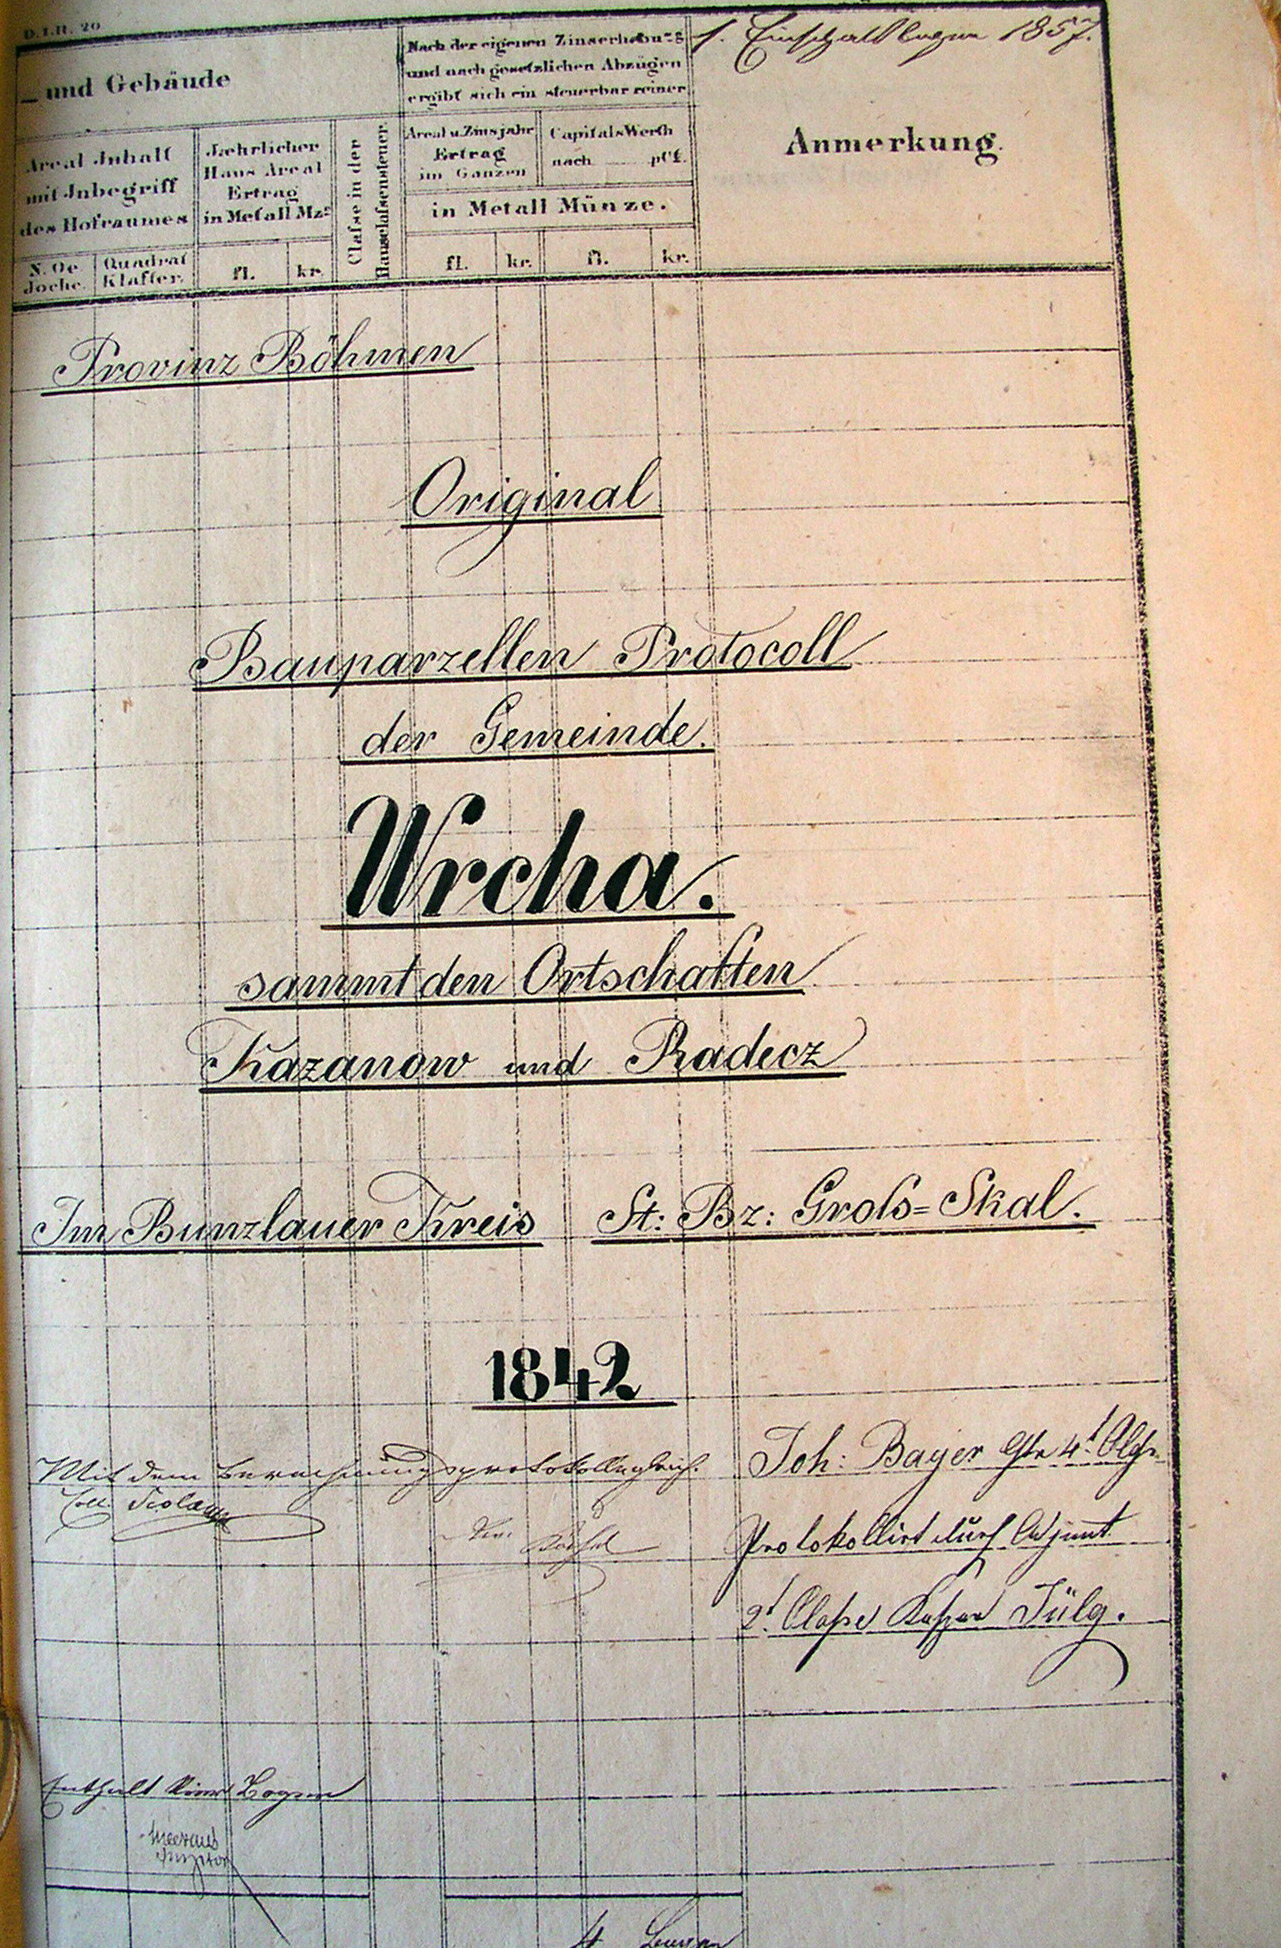 D.I.H. 20
und Gebäude
Nach der eigenen Zinserhebung
und nach gesetzlichen Abzügen
ergibt sich ein steuerbar reiner
1857.
Anmerkung.
Areal Inhalt
mit Inbegriff
des Hofraumes
Jæhrlicher
Haus Areal
Ertrag
in Metall Mze
Classe in der
Hausclassensteuer.
Areal u. Zinsjahr
Ertrag
im Ganzen
Capitals Werth
nach pCt.
in Metall Münze.
N. Oe
Joche.
Quadrat
Klafter.
fl. kr. fl. kr. fl. kr.
Provinz Böhmen
Original
Bauparzellen Protocoll
der Gemeinde.
Wrcha.
sammt den Ortschaften
Kazanow und Radecz
Im Bunzlauer Kreis St: Bz: Groſs=Skal.
1842
Mit dem
Joh: Bayer
Protokollirt durch Adjunt
2t Claſse Jülg.
Enthalt Bogen
4